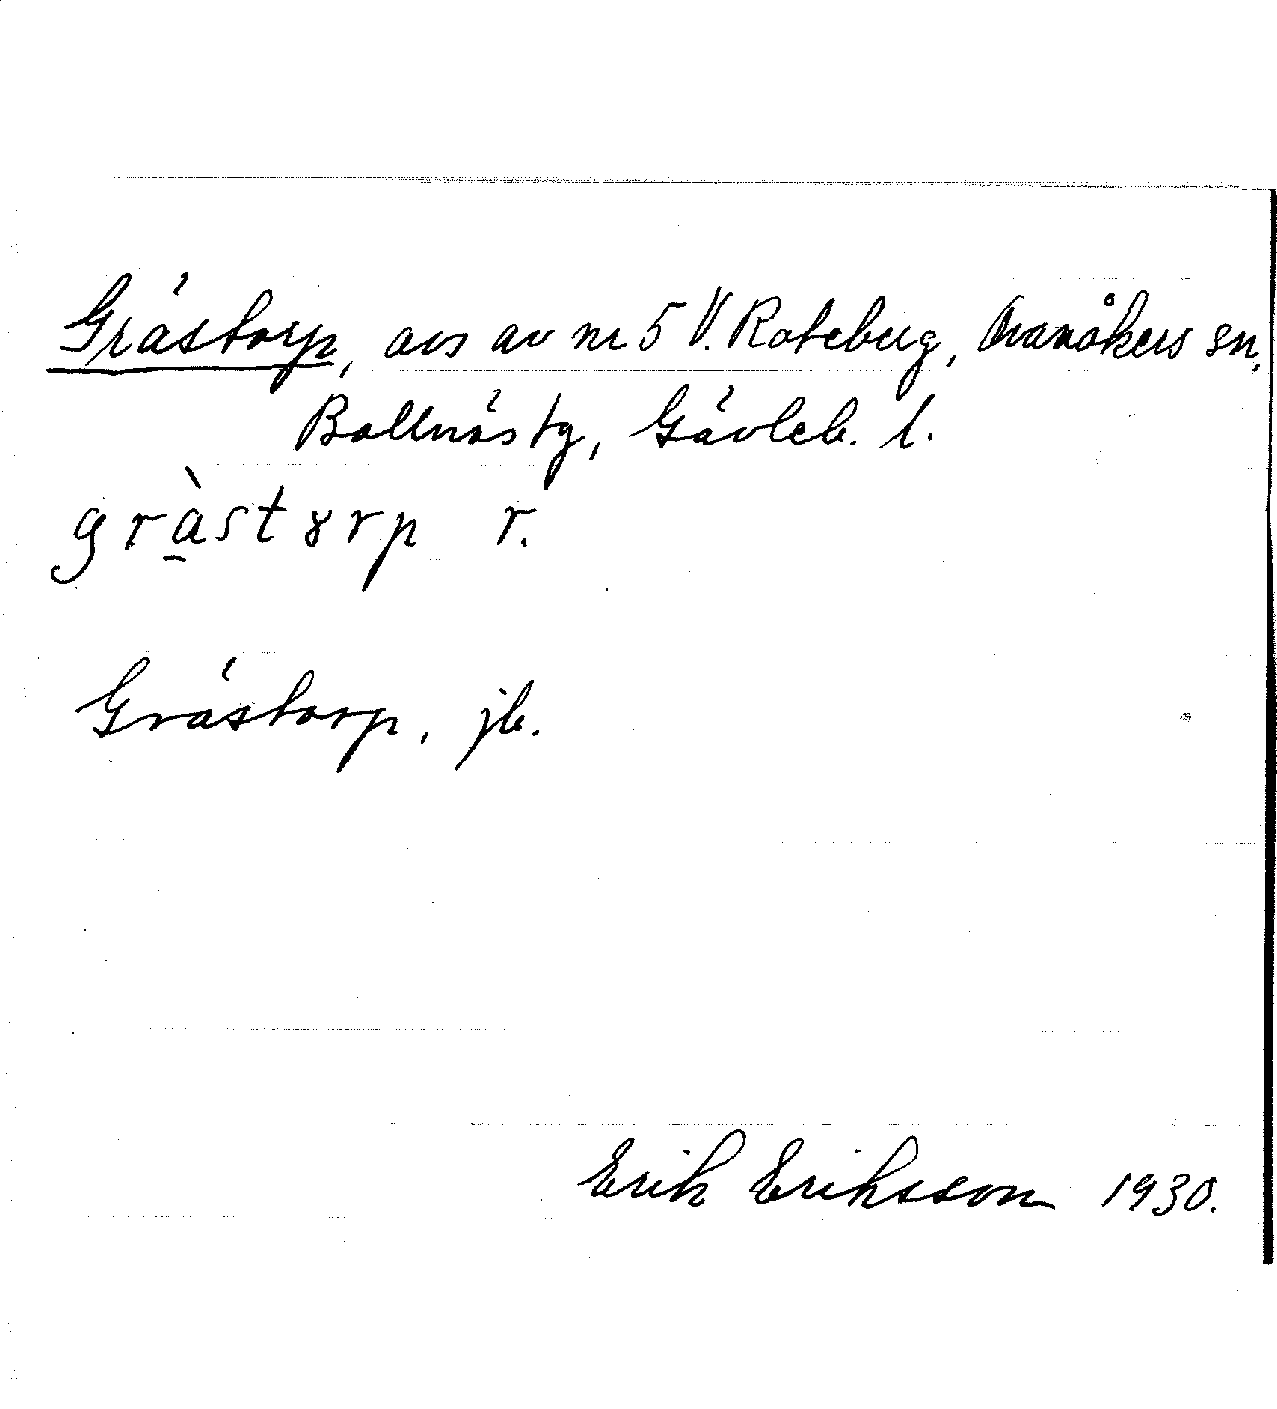 Gråstorp, avs av nr 5 V. Roteberg, Ovanåkers sn,
Bollnäs tg, Gävleb. l.
gràstørp r.
Gråstorp, jb.
Erik Eriksson 1930.